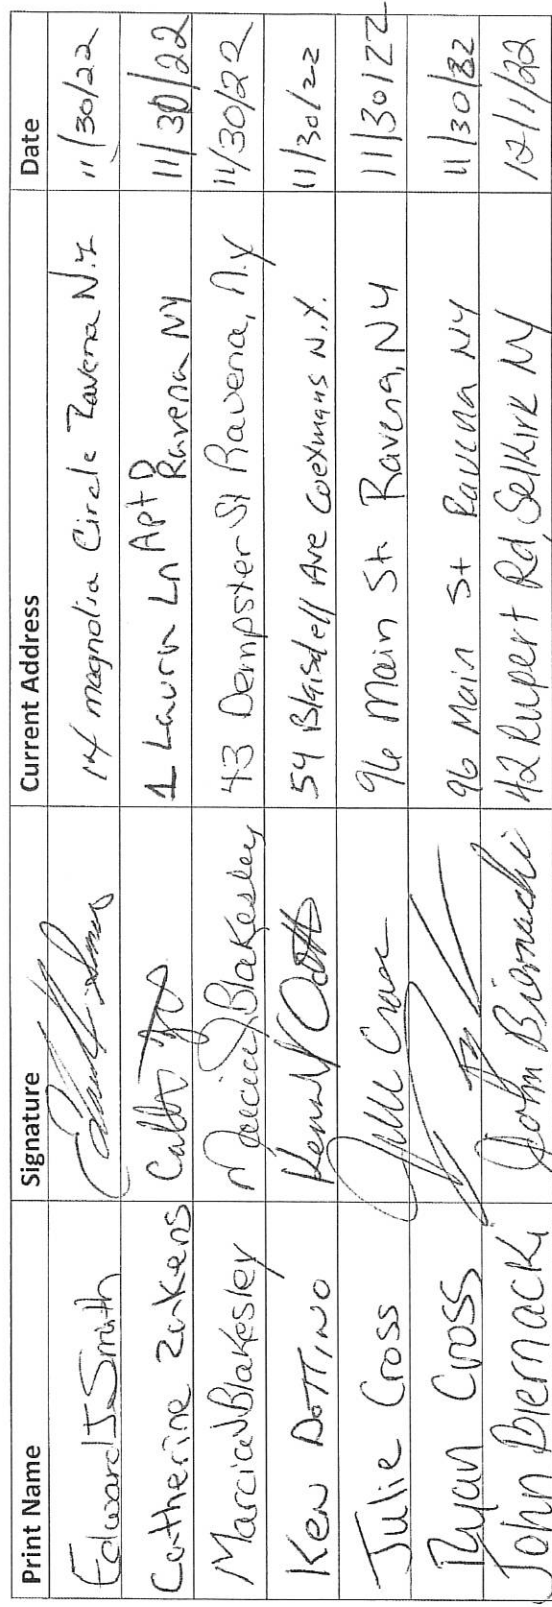 Print Name Signature Current Address Date
Edward J Smith 14 magnolia Circle Ravena N.Y 11/30/22
Catherine Zakens 1 Laura Ln Apt D Ravena NY 11/30/22
Marcia J Blakesley Marcia J Blakesley 43 Dempster St Ravena, N.y 11/30/22
Ken Dottino 54 Blaisdell Ave Coeymans N.Y. 11/30/22
Julie Cross Julie Cross 96 Main St. Ravena, NY 11/30/22
Ryan Cross 96 Main St Ravena NY 11/30/22
John Biernacki John Biernacki 42 Rupert Rd, Selkirk NY 12/1/22